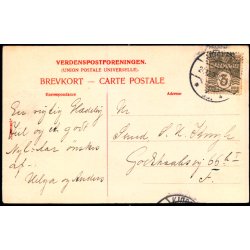 VERDENSPOSTFORENINGEN.
(UNION POSTALE UNIVERSELLE)
BREVKORT — CARTE POSTALE
Korrespondance
Adresse
En rigtig Glædelig
Jul og et godt
Nytdår ønskes
af
Helga og Anders
Smed P. K.
Godthaabsvej
F.
3